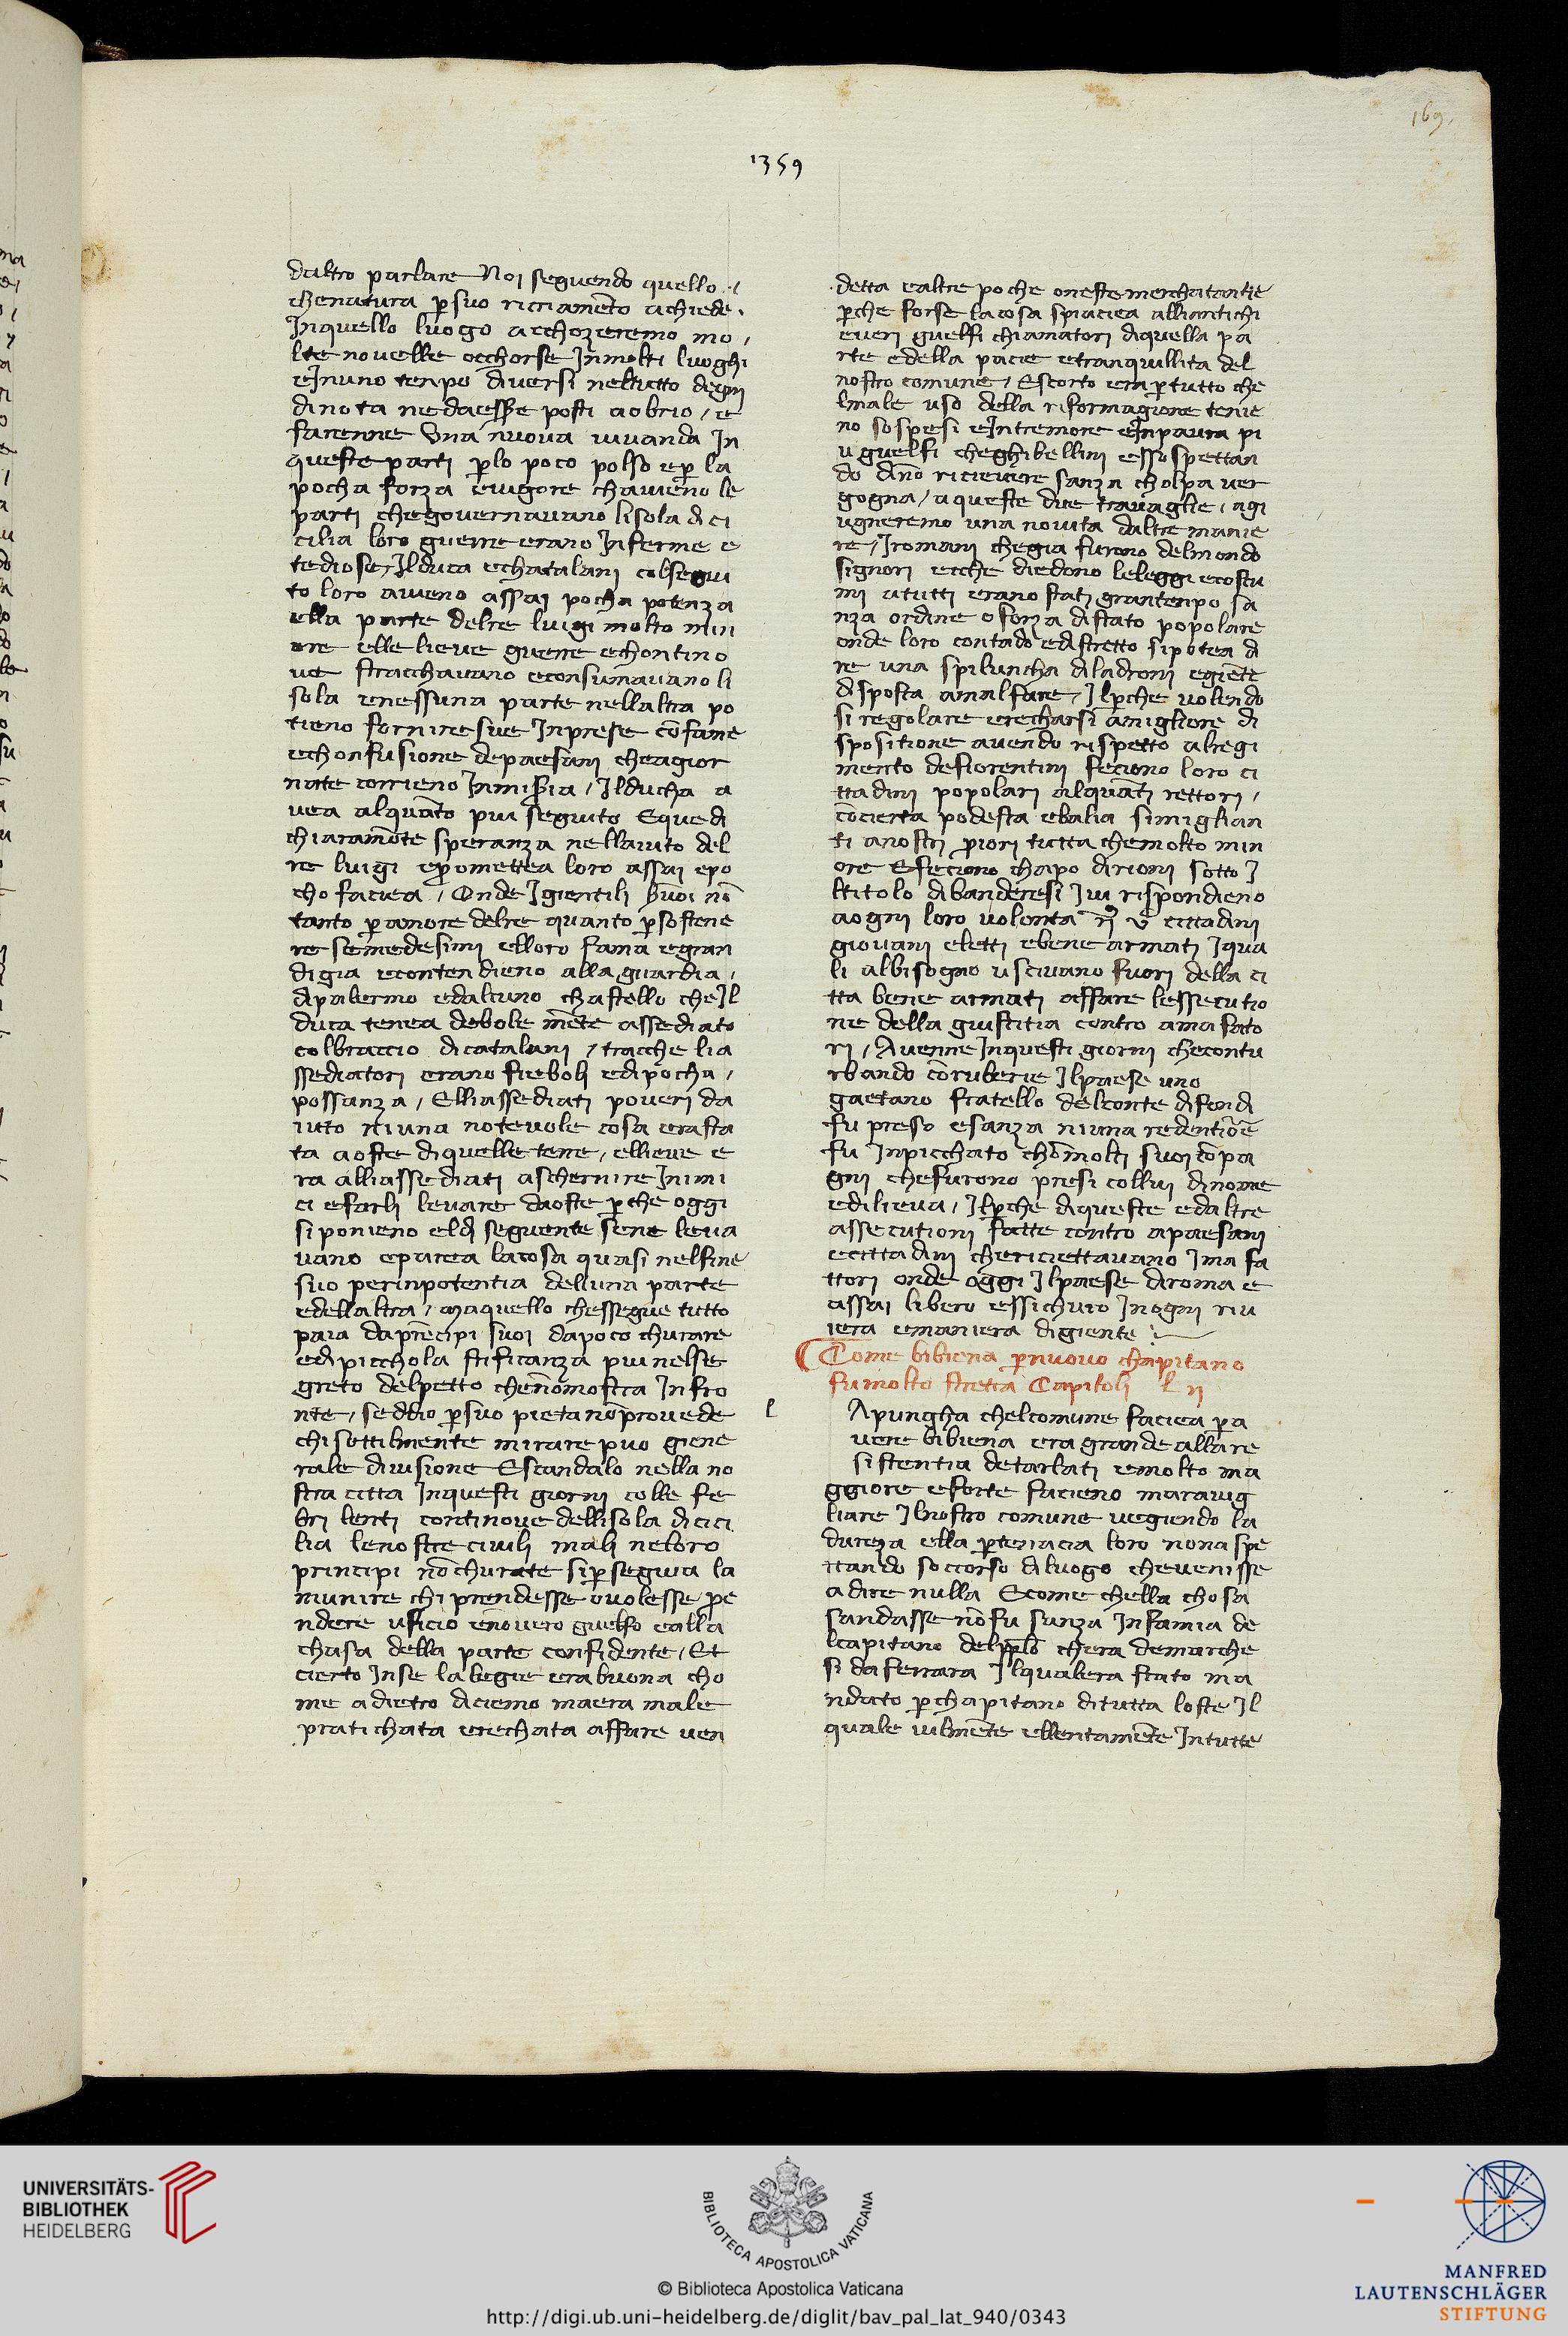 169.
1359
daltro parlare Noi seguendo quello /
che natura p̱ suo ricriam̄eto achiede.
Jnquello luogo acchozeremo mo /
lte novelle occhorse Jnmolti luoghi
eJnuno tenpo diversi neltutto degni
dinota nedaesse posti aobrio / e
farenne Una nuova vivanda Jn
queste parti p̱lo poco polso ep̱ la
pocha forza evigore chavieno le
parti chegovernavano lisola dici
cilia loro guerre erano Jnferme e
tediose / Jlduca echatalani colsegui
to loro avieno assai pocha potenza
ella parte delre luigi molto min
ore elle lieve guerre echontino
ve stracchavano econsumavano li
sola enessuna parte nellaltra po
tieno fornire sue Jnprese cōfame
echonfusione depaesani cheagior
nate corrieno Jnmis̄ia / Jlducha a
vea alquāto piu seguito Equedi
chiaramēte speranza nellaiuto del
re luigi ep̱omettea loro assai epo
cho faciea / Onde Jgientili huoi nō
tanto p̱amore delre quanto p̱sostene
re semedesimi elloro fama egran
digia econtendieno alla guardia /
dipalermo edalcuno chastello cheJl
duca tenea debole mēte assediato
colbraccio dicatalani / tracche lia
ssediatori erano fieboli edipocha /
possanza / Elliassediati poveri da
iuto niuna notevole cosa erasta
ta aoste diquelle terre / ellieve e
ra alliassediati aschernire Jnimi
ci efarli levare daoste p̱che oggi
siponieno eldi seguente sene leva
vano eparea lacosa quasi nelfine
suo perinpotentia delluna parte
edellaltra / maquello chessegue tutto
paia daprēcipi suoi dapoco churare
edipicchola stificanza piu nelse
greto delpetto chenōmostra Jnfro
nte / seddio p̱suo pieta nōprovede
chi sottilmente mirare puo giene
rale divisione Escandalo nella no
stra citta Jnquesti giorni colle fe
bri lenti continove dellisola dicici
lia lenostre civili mali neloro
principi nōchurate sip̱seguia la
munire chi prendesse ovolesse pe
ndere uficio enōvero guelfo ealla
chasa della parte confidente / Et
cierto Jnse la legie era buona cho
me adietro diciemo maera male
pratichata erechata affare ven
detta ealtre poche oneste merchatantie
p̱che forse lacosa spiaciea alliantichi
everi guelfi chiamatori diquella pa
rte edella pacie etranquillita del
nostro comune / Escorto era p̱ tutto che
lmale uso della riformagione tenie
no sospesi eJntremore eJnpaura pi
u guelfi cheghibellini essospettan
do dāno ricievere sanza cholpa ver
gogna / aqueste due travaglie / agi
ugneremo una novita daltre manie
re / Jromani chegia furono delmondo
signori ecche diedono leleggi ecostu
mi atutti erano stati grantenpo sa
nza ordine oforza distato popolare
onde loro contado edistretto sipotea di
re una spiluncha diladroni egiēte
disposta amalfare / Jlp̱che volendo
si regolare erecharsi amigliore di
spositione avendo rispetto alregi
mento defiorentini feciono loro ci
ttadini popolari alquāti rettori /
cōcierta podesta ebalia simiglian
ti anostri priori tutta chemolto min
ore Efeciono chapo dirioni sotto J
ltitolo dibanderesi Jvi rispondieno
aogni loro volonta cittadini
giovani eletti ebene armati Jqua
li albisogno uscivano fuori della ci
tta bene armati affare lessecutio
ne della giustitia contro amafato
ri / Avenne Jnquesti giorni checontu
rbando cōruberie Jlpaese uno
gaetano fratello delconte difondi
fu preso esanza niuna redentiōe
fu Jnpicchato chōmolti suoi cōpa
gni chefurono presi collui dinome
edilieva / Jlp̱che diqueste edaltre
assecutioni fatte contro apaesani
ecittadini chericiettavano Jmafa
ttori onde oggi Jlpaese diroma e
assai libero essichuro Jnogni riu
iera emaniera digiente
Come bibiena p̱nuovo chapitano
fu molto stretta Capitoli L ij
l
Apungha chelcomune faciea p̱a
vere bibiena era grande allare
sistentia detarlati emolto ma
ggiore eforte facieno maravig
liare Jlnostro comune vegiendo la
dureza ella p̱tenacia loro nonaspe
ttando soccorso diluogo chevenisse
adire nulla Ecome chella chosa
sandasse nōfu sanza Jnfamia de
lcapitano delp̱plō chera demarche
si daferrara Jlqualera stato ma
ndato p̱chapitano ditutta loste Jl
quale vilmēte ellentamēte Jntutte
UNIVERSITÄTS-
BIBLIOTHEK
HEIDELBERG
BIBLIOTECA APOSTOLICA VATICANA
© Biblioteca Apostolica Vaticana
http://digi.ub.uni-heidelberg.de/diglit/bav_pal_lat_940/0343
MANFRED
LAUTENSCHLÄGER
STIFTUNG